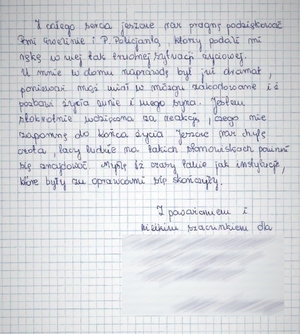 Z całego serca jeszcze raz pragnę podziękować
Pani Ewelinie i P. Policjantą, którzy podali mi
rękę w mej tak trudnej sytuacji życiowej.
U mnie w domu naprawdę był już dramat,
ponieważ mąż miał w mózgu zakodowane i ż
pozbawi życia mnie i mego syna. Jestem
stokrotnie wdzięczna za reakcję, czego nie
zapomnę do końca życia jeszcze raz chylę
czoła, tacy ludzie na takich stanowiskach powinni
się znajdować. Myślę iż czasy takie jak instytucje,
które były za oprawcami się skończyły.
Z poważaniem i
wielkim szacunkiem dla